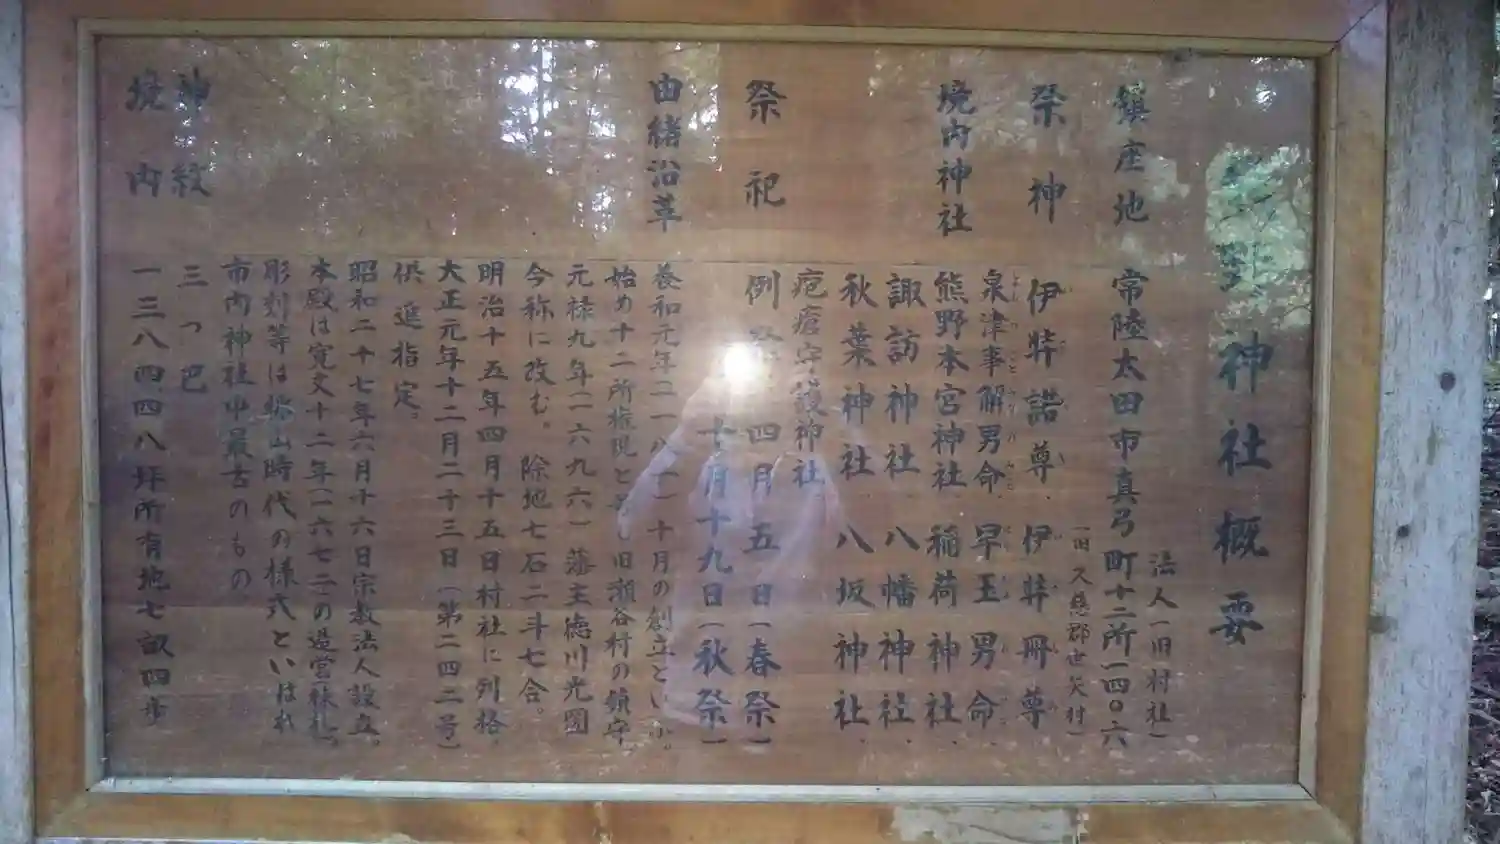 神社概要
法人(旧村社)
鎮座地 常陸太田市真弓町十二所一四〇六
(旧久慈郡世矢村)
祭神 伊弉諾尊、伊弉冊尊
泉津事解男命、早玉男命、
境内神社 熊野本宮神社、稲荷神社、
諏訪神社、八幡神社、
秋葉神社 八坂神社、
疱瘡守護神社
祭祀 例祭 四月五日(春祭)
十月十九日(秋祭)
由緒沿革 養和元年(一一八一)十月の創立という。
始め十二所権現と 旧瀬谷村の鎮守。
元禄九年(一六九六)藩主徳川光圀
今称に改む。除地七石二斗七合。
明治十五年四月十五日村社に列格、
大正元年十二月二十三日(第二四二号)
供進指定。
昭和二十七年六月十六日宗教法人設立。
本殿は寛文十二年(一六七二)の造営棟札。
彫刻等は桃山時代の様式といはれ
市内神社中最古のもの
神紋 三つ巴
境内 一三八四四八坪所有地七畝四歩